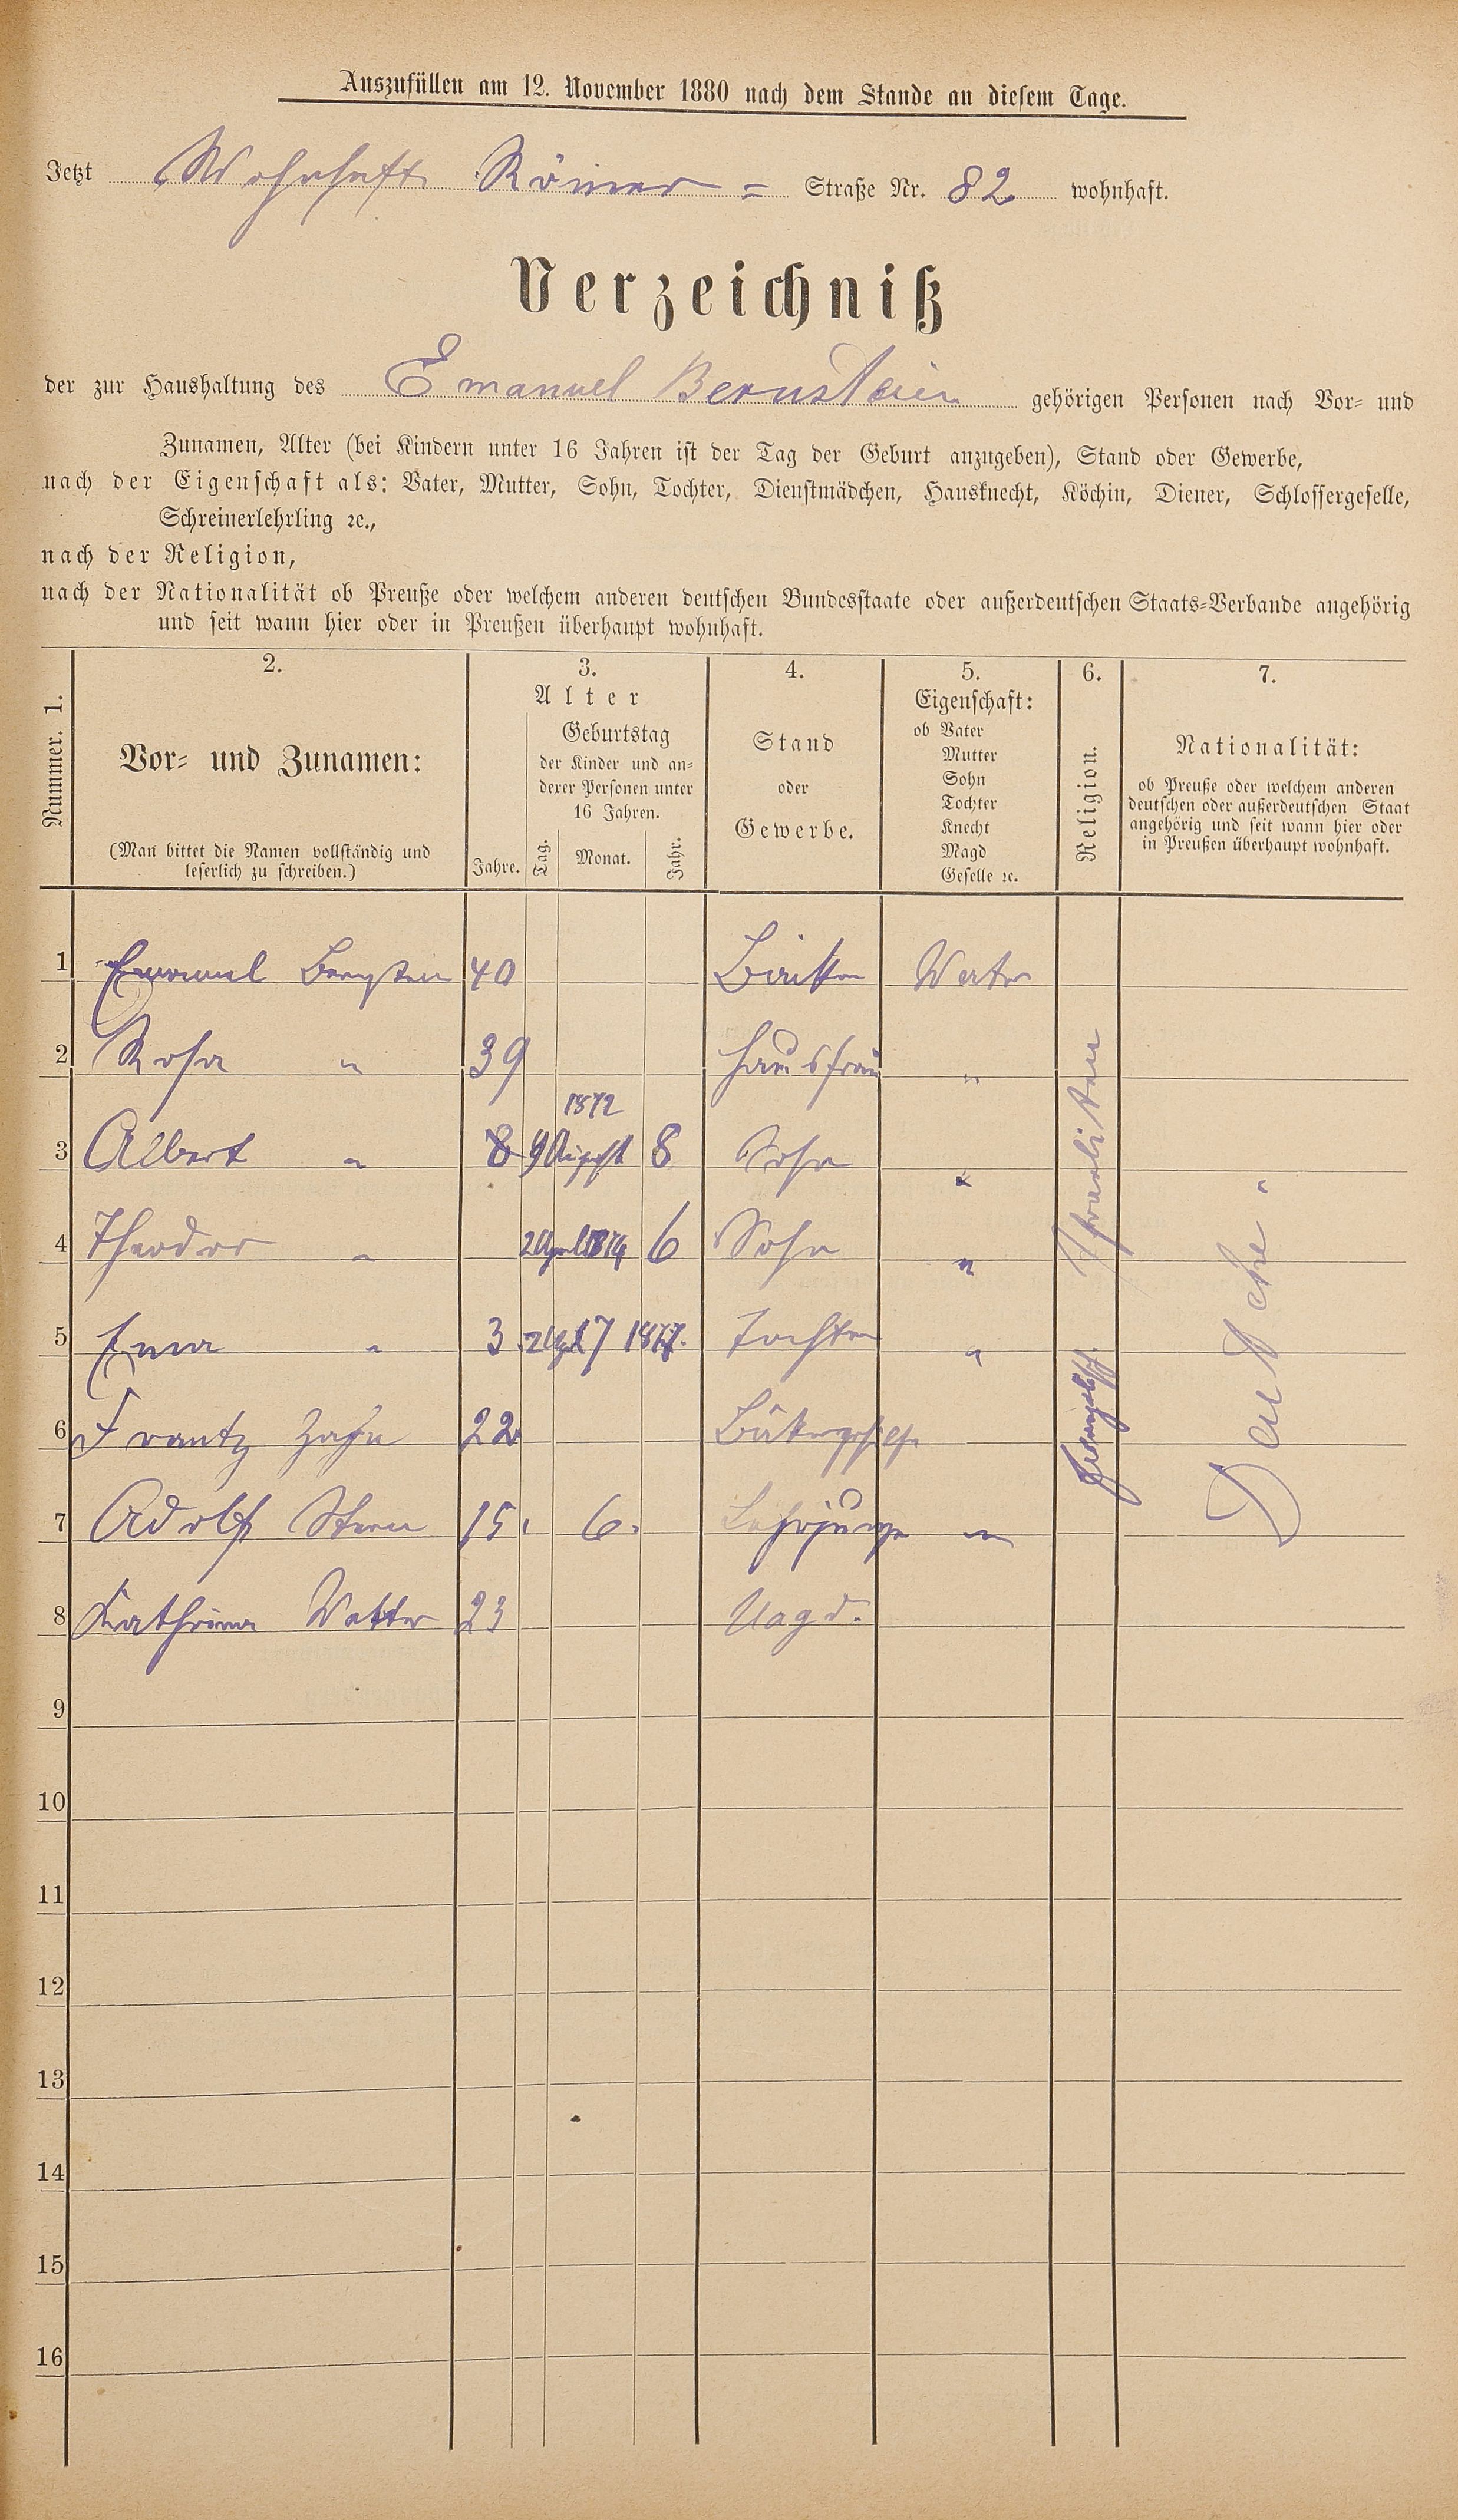 Auszufüllen am 12. November 1880 nach dem Stande an diesem Tage.
Jetzt Wohnhaft Römer= Straße Nr. 82 wohnhaft.
Verzeichniß
der zur Haushaltung des Emanuel Bernstein gehörigen Personen nach Vor- und
Zunamen, Alter (bei Kindern unter 16 Jahren ist der Tag der Geburt anzugeben), Stand oder Gewerbe,
nach der Eigenschaft als: Vater, Mutter, Sohn, Tochter, Dienstmädchen, Hausknecht, Köchin, Diener, Schlossergeselle,
Schreinerlehrling ꝛc.,
nach der Religion,
nach der Nationalität ob Preuße oder welchem anderen deutschen Bundesstaate oder außerdeutschen Staats-Verbande angehörig
und seit wann hier oder in Preußen überhaupt wohnhaft.
Nummer. 1.
2.
Vor- und Zunamen:
(Man bittet die Namen vollständig und
leserlich zu schreiben.)
3.
Alter
Jahre.
Geburtstag
der Kinder und an-
derer Personen unter
16 Jahren.
Tag. Monat. Jahr.
4.
Stand
oder
Gewerbe.
5.
Eigenschaft:
ob Vater
Mutter
Sohn
Tochter
Knecht
Magd
Geselle ꝛc.
6.
Religion.
7.
Nationalität:
ob Preuße oder welchem anderen
deutschen oder außerdeutschen Staat
angehörig und seit wann hier oder
in Preußen überhaupt wohnhaft.
1 Emanuel 40 Vater
2 Rosa " 39 Hausfrau "
1872
3 Albert " 8 9 August 8 Sohn "
4 Theodor " 2 April 1874 6 Sohn "
5 Ema " 3 1877. Tochter "
6 Frantz Zahn 22
7 Adolf Stern 15. 6. Lehrjunge "
8 Kathrina 23 Magd.
Israeliten
Evangelisch.
Deutsche "
9
10
11
12
13
14
15
16